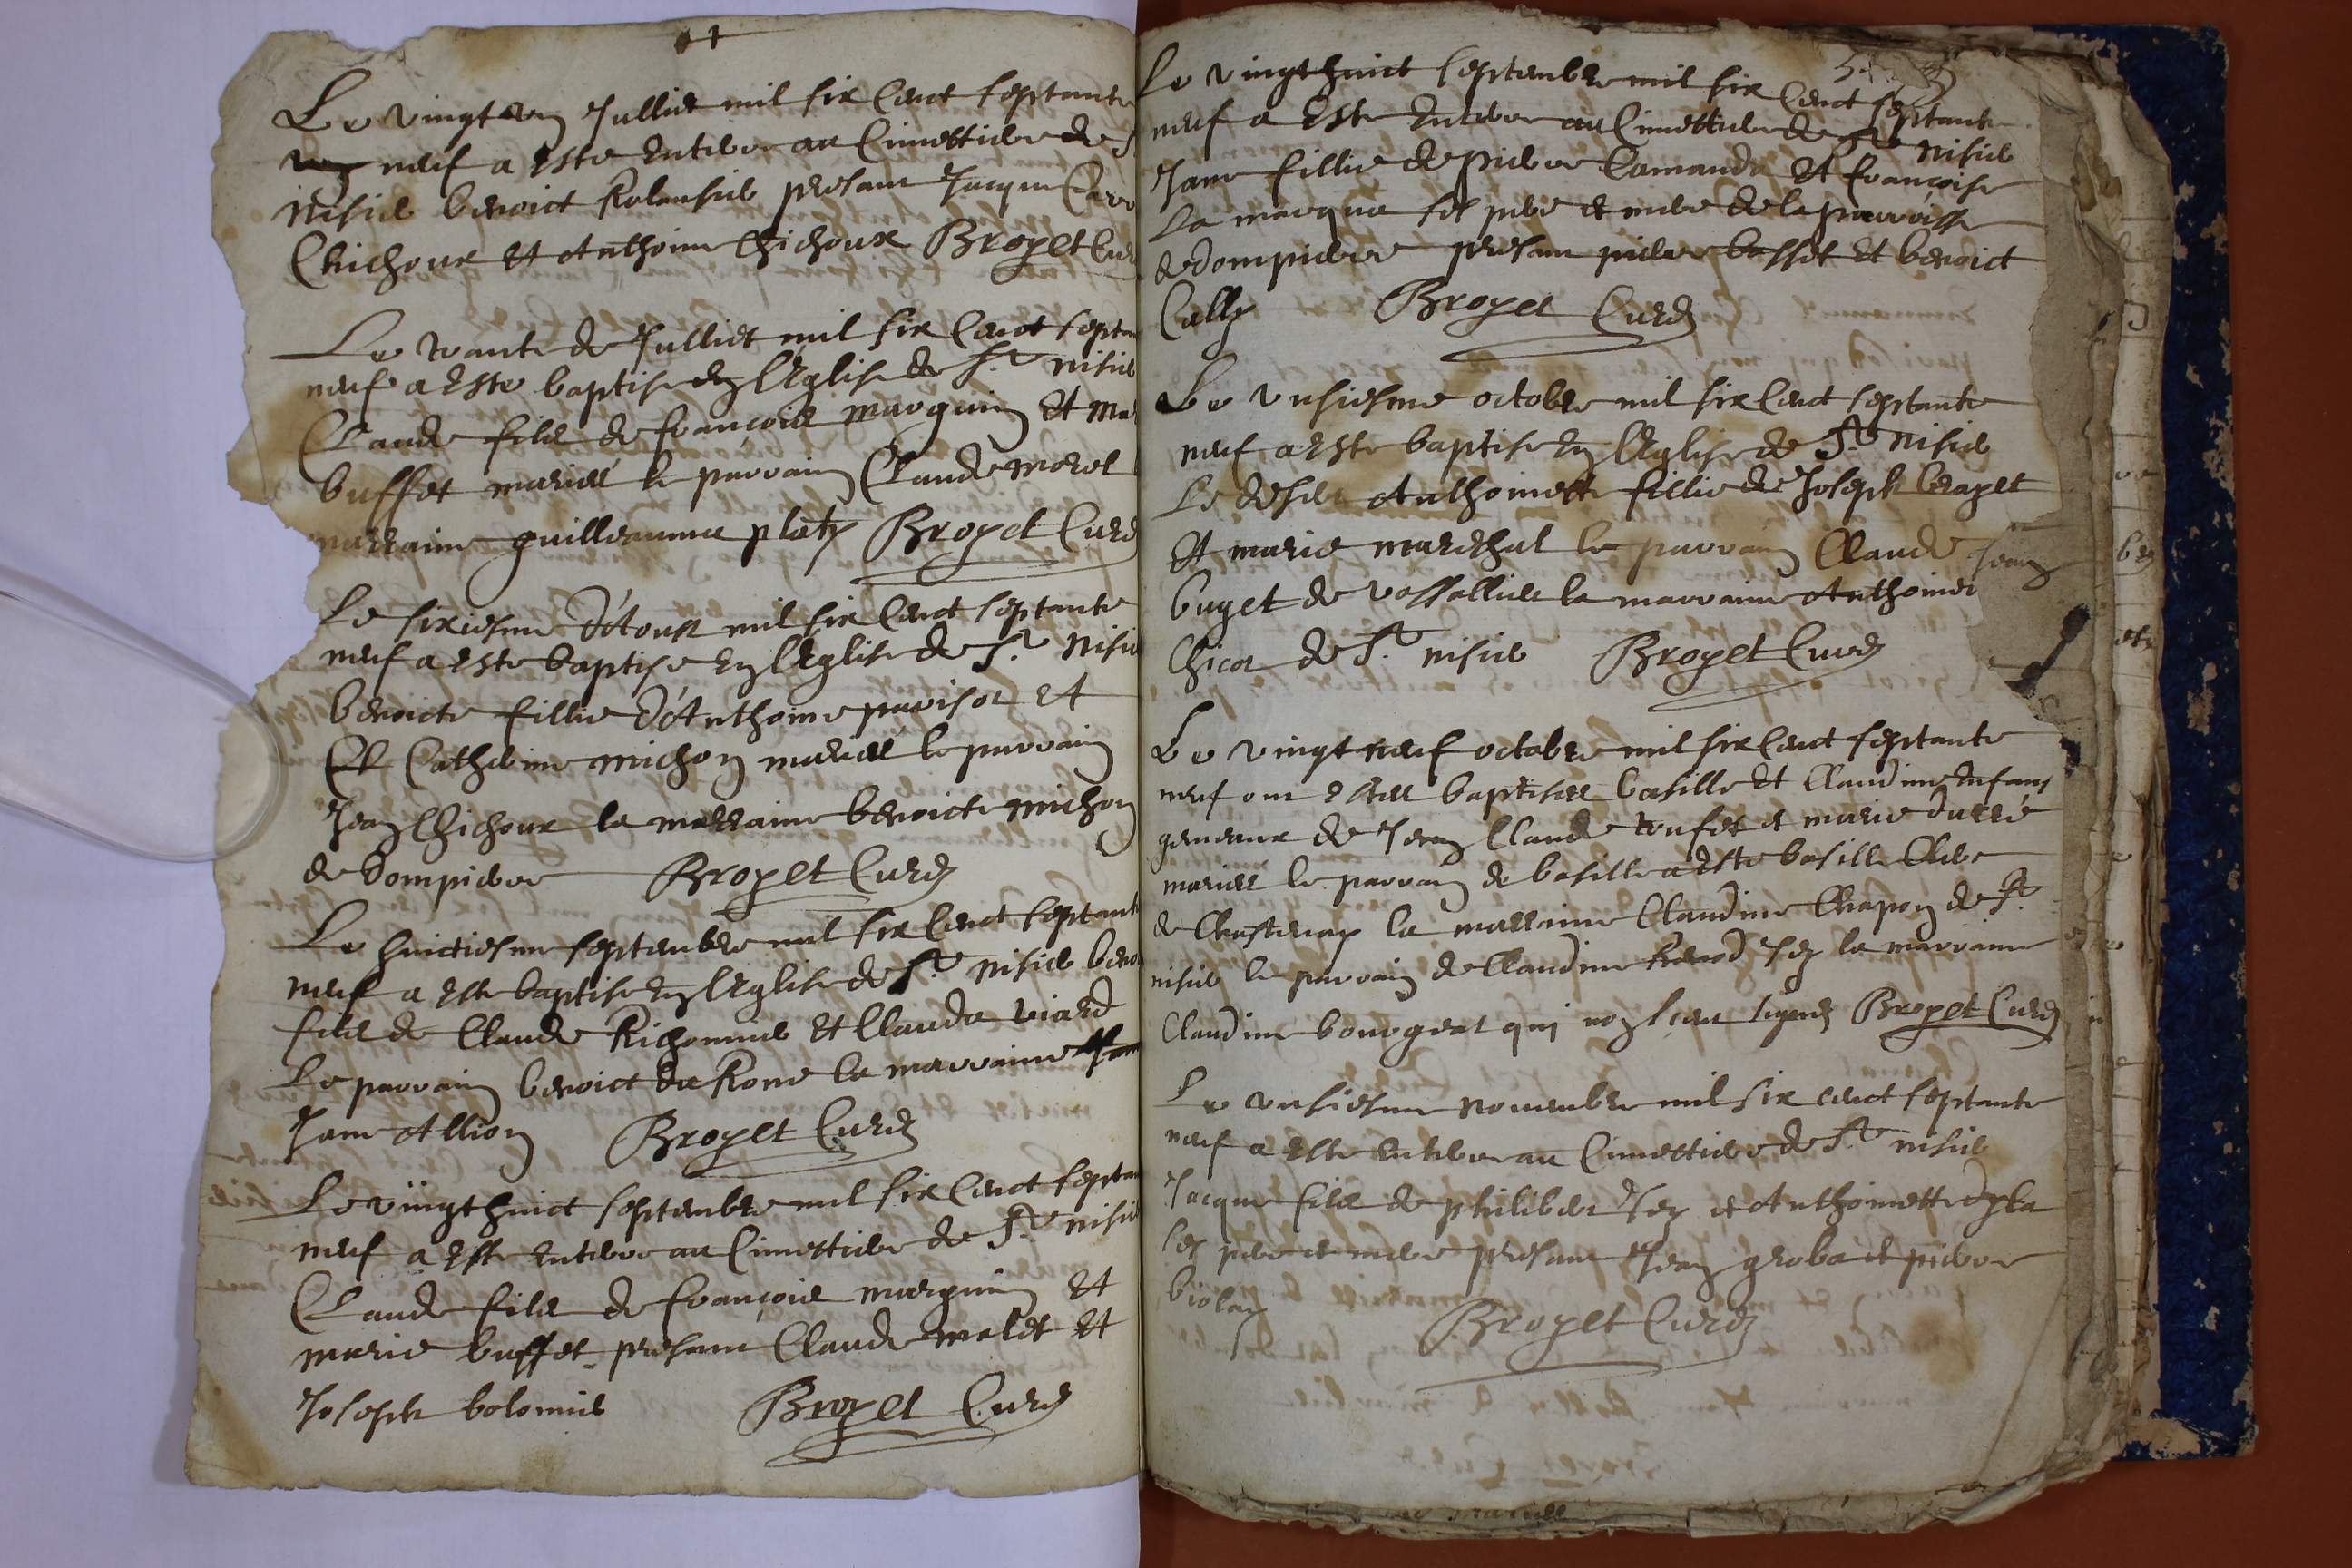 Le vingt ung Julliet mil six Cent septante
neuf a este entere au Cimettiere de S
nisie benoict Rolansie presant Jacque
Chichoux et Anthoine Chichoux Broyet Curé
Le trante de Julliet mil six Cent septa
neuf a este baptise en lEglise de St nisie
Claude fils de françois marguin et Ma
buffet mariés le parrain Claude morel
marraine guilleauma platy Broyet Curé
Le sixiesme d'Aoust mil six Cent septante
neuf a este baptise en lEglise de St nisie
benoicte fillie d'Anthoine parisot et
et Catherine michon mariés le parrain
Jean Chichoux la marraine benoicte michon
de dompierre Broyet Curé
Le huictiesme septembre mil six Cent septant
neuf a este baptise en lEglise de St nisie beno
fils de Claude Richomie et Clauda viard
Le parrain benoict du Rone la marraine
Jane Allion Broyet Curé
Le vingt huict septembre mil six Cent septan
neuf a este entere au Cimettiere de St nisie
Claude fils de françois marguin et
marie buffet presant Claude molet et
Joseph bolomie Broyet Curé
Le vingt huict septembre mil six Cent septante
neuf a este entere au Cimettiere de St nisie
Jane fillie de pierre Camanda et françoise
La marque ses pere et mere de la parroisse
de dompierre presant pierre basset et benoict
Cally Broyet Curé
Le unsiesme octobre mil six Cent septante
neuf a este baptise en lEglise de St nisie
Le desert Anthoinette fillie de Joseph
et marie marechal le parrain Claude Jean
buget de vassallie la marraine Anthoine
Chicot de St nisie Broyet Curé
Le vingt neuf octobre mil six Cent septante
neuf ont estes baptises basille et Claudine enfans
gemeaux de Jean Claude trufet et marie durré
mariés le parrain de basille a este basille Clere
de Chastenay la marraine Claudine Chapon de St
nisie le parrain de Claudine Jey la marraine
Claudine bourgeat qui nont sceu signer Broyet Curé
Le unsiesme novembre mil six cent septante
neuf a este entere au Cimettiere de St nisie
Jacque fils de philiber Jey et Anthoinette
ses pere et mere presant Jean groba et pierre
biolay Broyet Curé